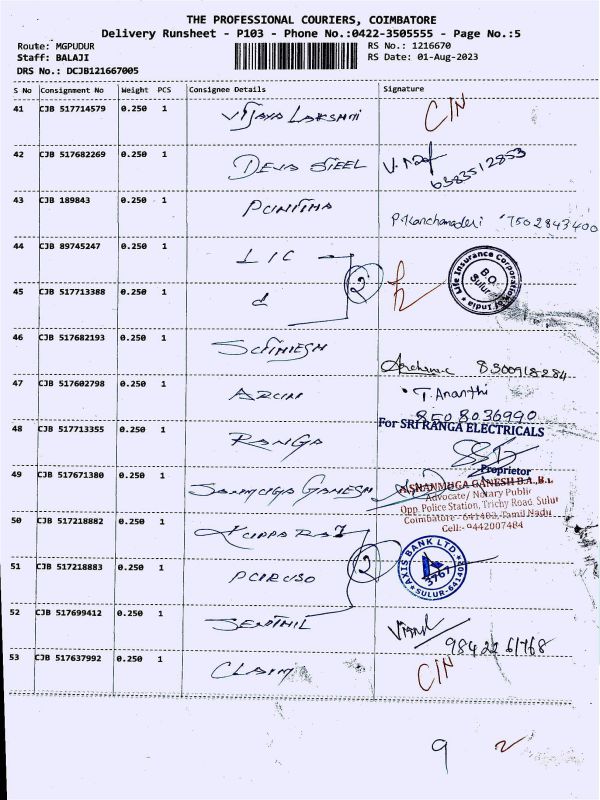 THE PROFESSIONAL COURIERS, COIMBATORE
Delivery Runsheet - P103 - Phone No.:0422-3505555 - Page No.:5
Route: MGPUDUR RS No.: 1216670
Staff: BALAJI RS Date: 01-Aug-2023
DRS No.: DCJB121667005
S No Consignment No Weight PCS Consignee Details Signature
41 CJB 517714579 0.250 1 VIJAYA LAKSHMI C/N
42 CJB 517682269 0.250 1 DEVA STEEL
6383512853
43 CJB 189843 0.250 1
P. Kanchanadevi 7502843400
44 CJB 89745247 0.250 1 LIC
Life Insurance Corporation of India
B.O.
Sulur
45 CJB 517713388 0.250 1 d 2
46 CJB 517682193 0.250 1
8300918284
47 CJB 517602798 0.250 1 ARUN T. Ananthi
8508036990
48 CJB 517713355 0.250 1 RANGA For SRI RANGA ELECTRICALS
Proprietor
49 CJB 517671380 0.250 1 SANMUGA GANESH
SHANMUGA GANESH B.A.,B.L
Advocate / Notary Public
Opp. Police Station, Trichy Road, Sulur
Coimbatore - 641402, Tamil Nadu
Cell:- 9442007484
50 CJB 517218882 0.250 1 KUPPA RAJ
51 CJB 517218883 0.250 1 2
AXIS BANK LTD
3767
SULUR-641402
52 CJB 517699412 0.250 1 SENTHIL
98422 61768
53 CJB 517637992 0.250 1 CLAIM C/N
9 2